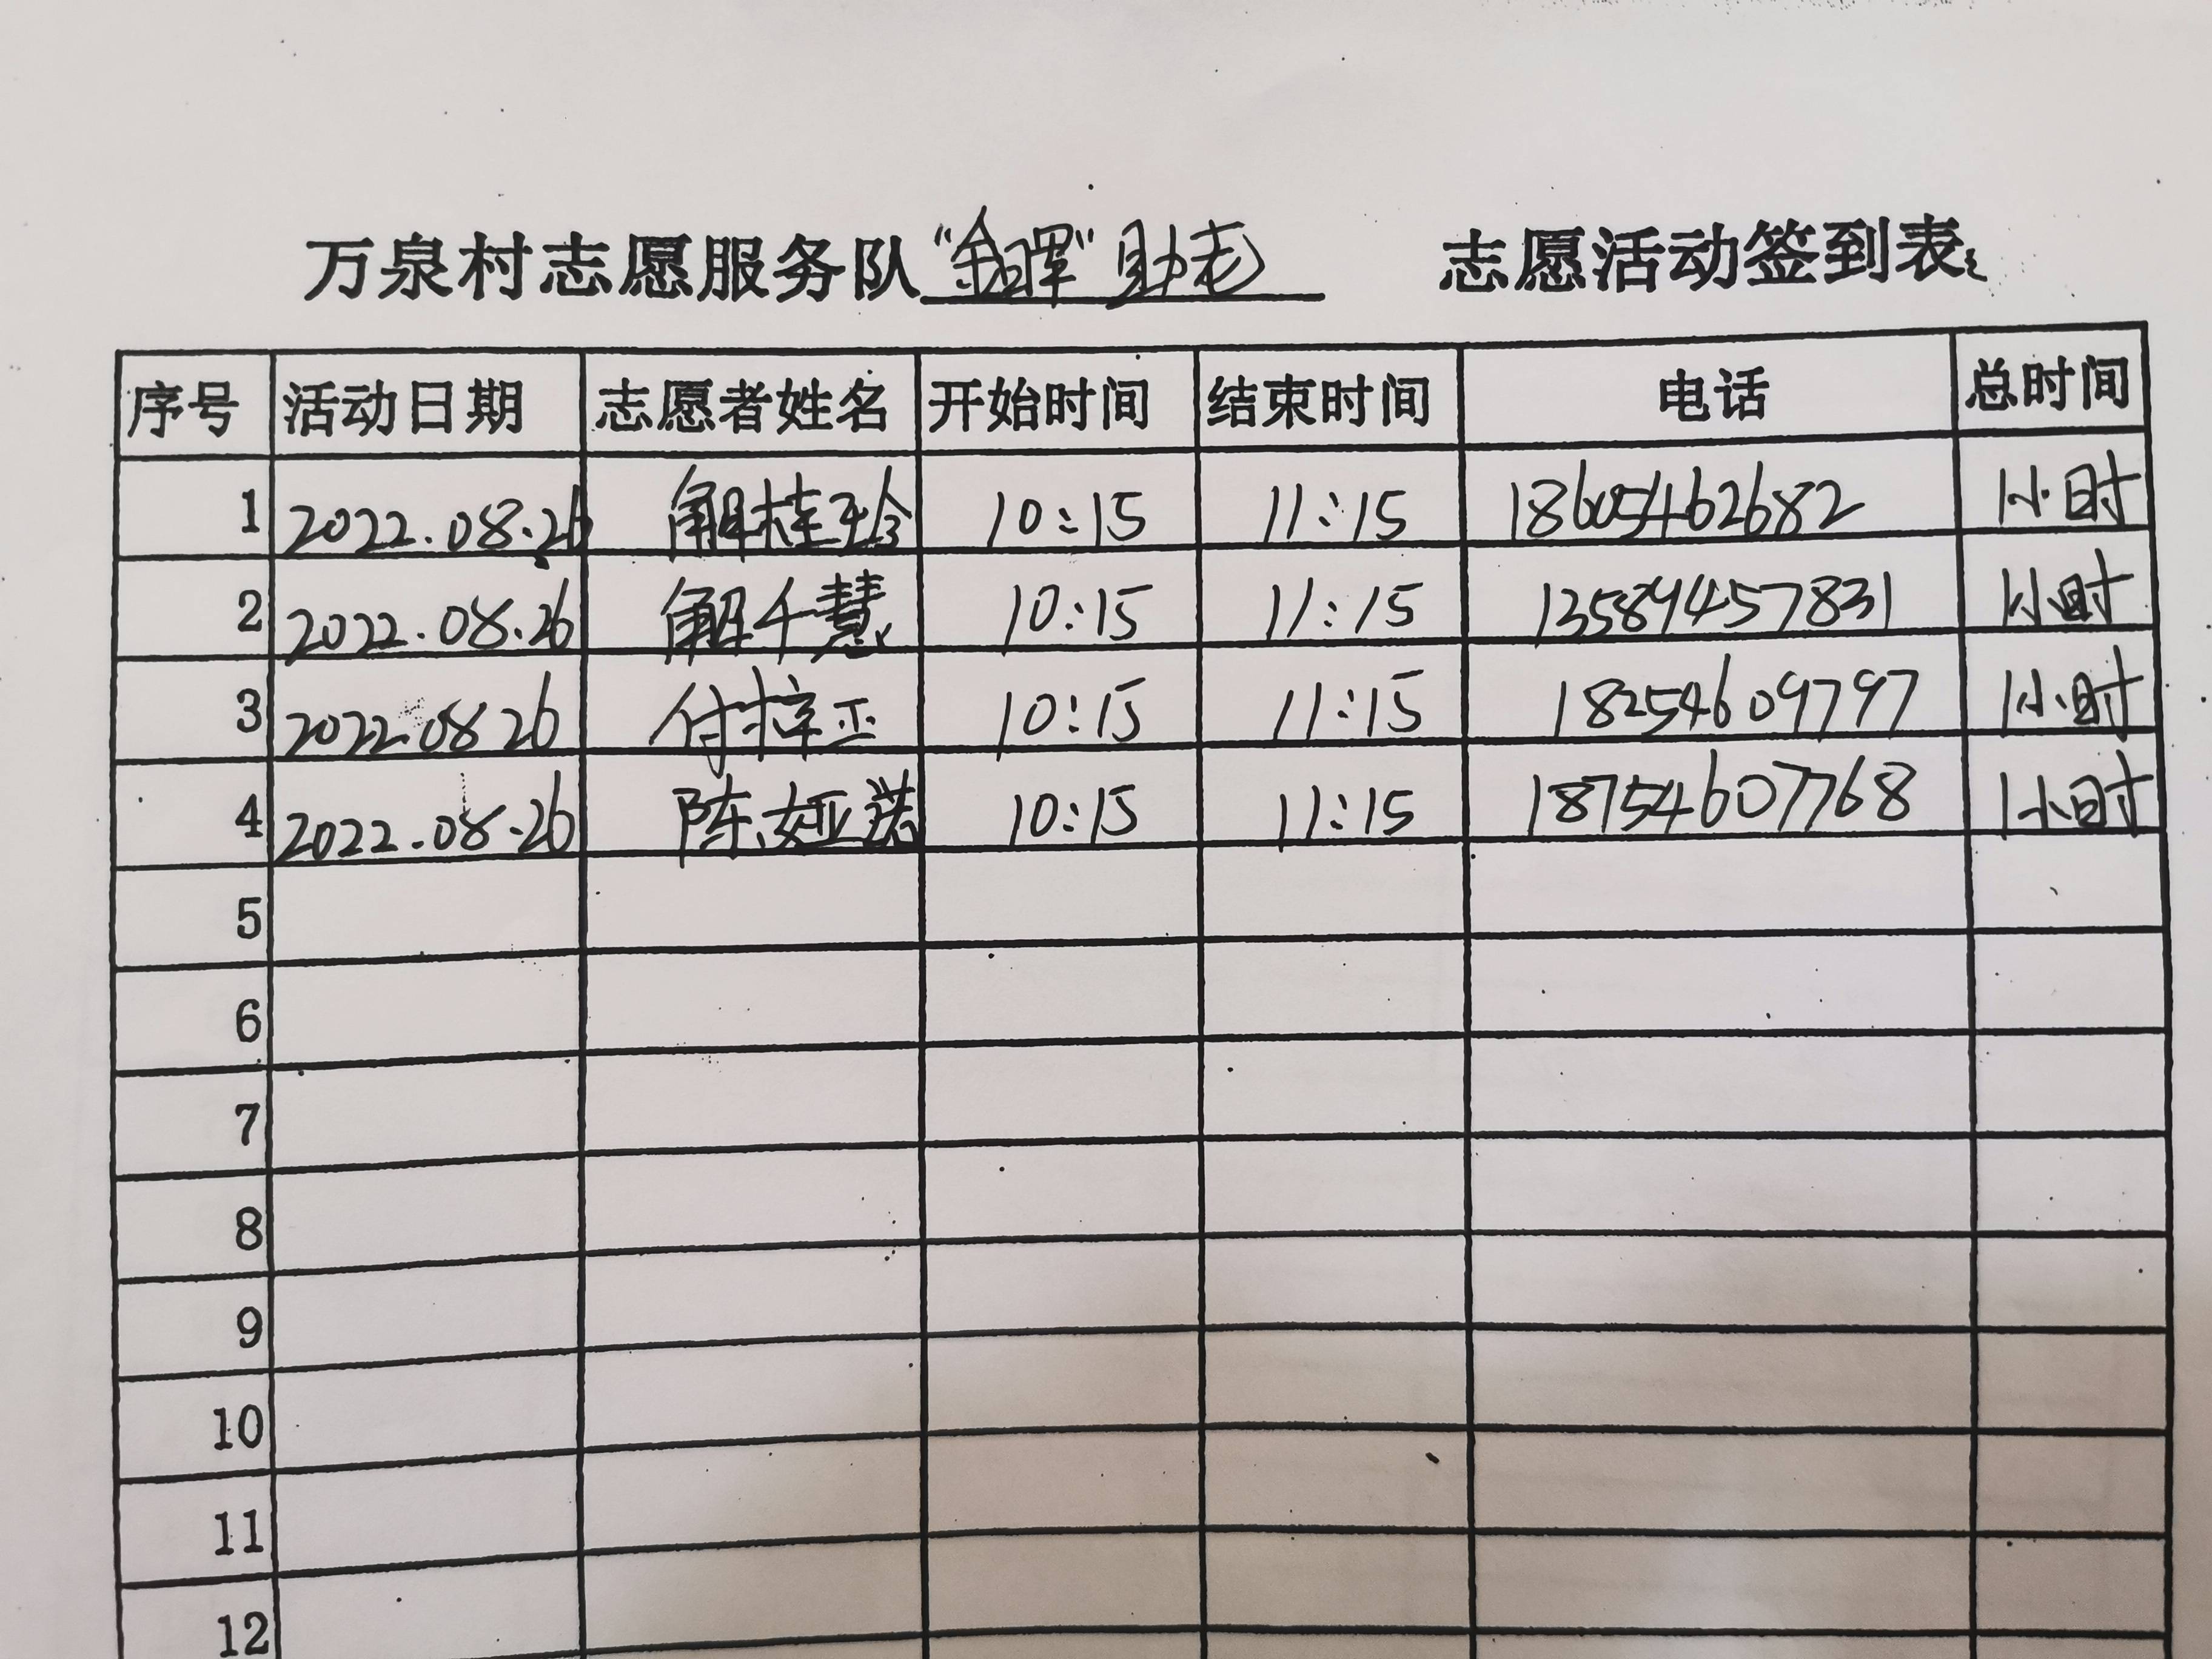 万泉村志愿服务队"金晖"助老 志愿活动签到表
序号 活动日期 志愿者姓名 开始时间 结束时间 电话 总时间
1 2022.08.26 解桂玲 10:15 11:15 18605462682 1小时
2 2022.08.26 解千慧 10:15 11:15 13589457831 1小时
3 2022.08 26 付梓正 10:15 11:15 18254609797 1小时
4 2022.08.26 陈娅诺 10:15 11:15 18754607768 1小时
5
6
7
8
9
10
11
12